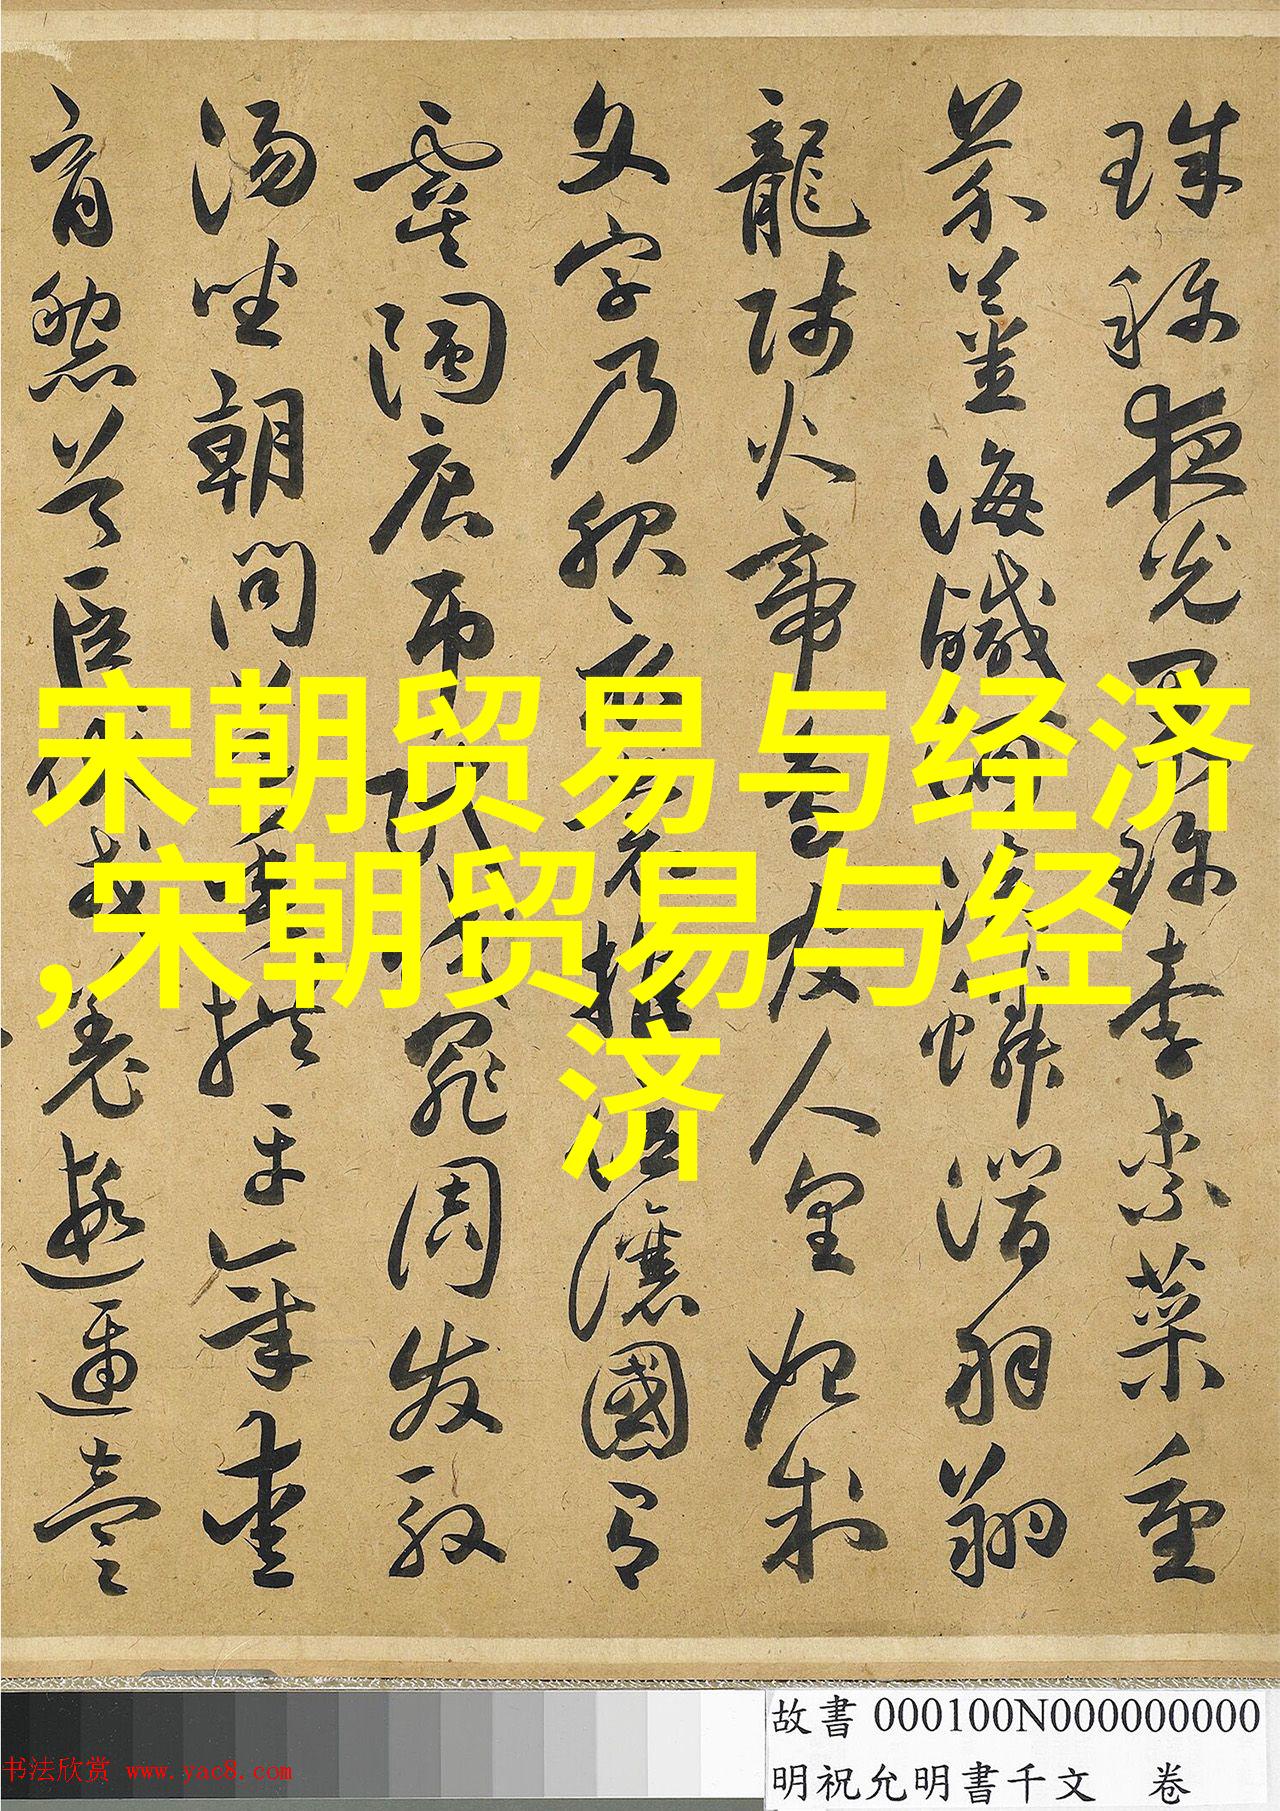 珠稱夜光果珍李柰菜重
芥薑海鹹河淡鱗潛羽翔
龍師火帝鳥官人皇始制
文字乃服衣裳推位讓國有
虞陶唐弔民伐罪周发殷
湯坐朝問道垂拱平章愛
育黎首臣伏戎羌遐邇壹
宋朝贸易与经济
,宋朝贸易与经
济
故書 000100N000000000
明祝允明書千文 卷
书法欣赏 www.yac8.com